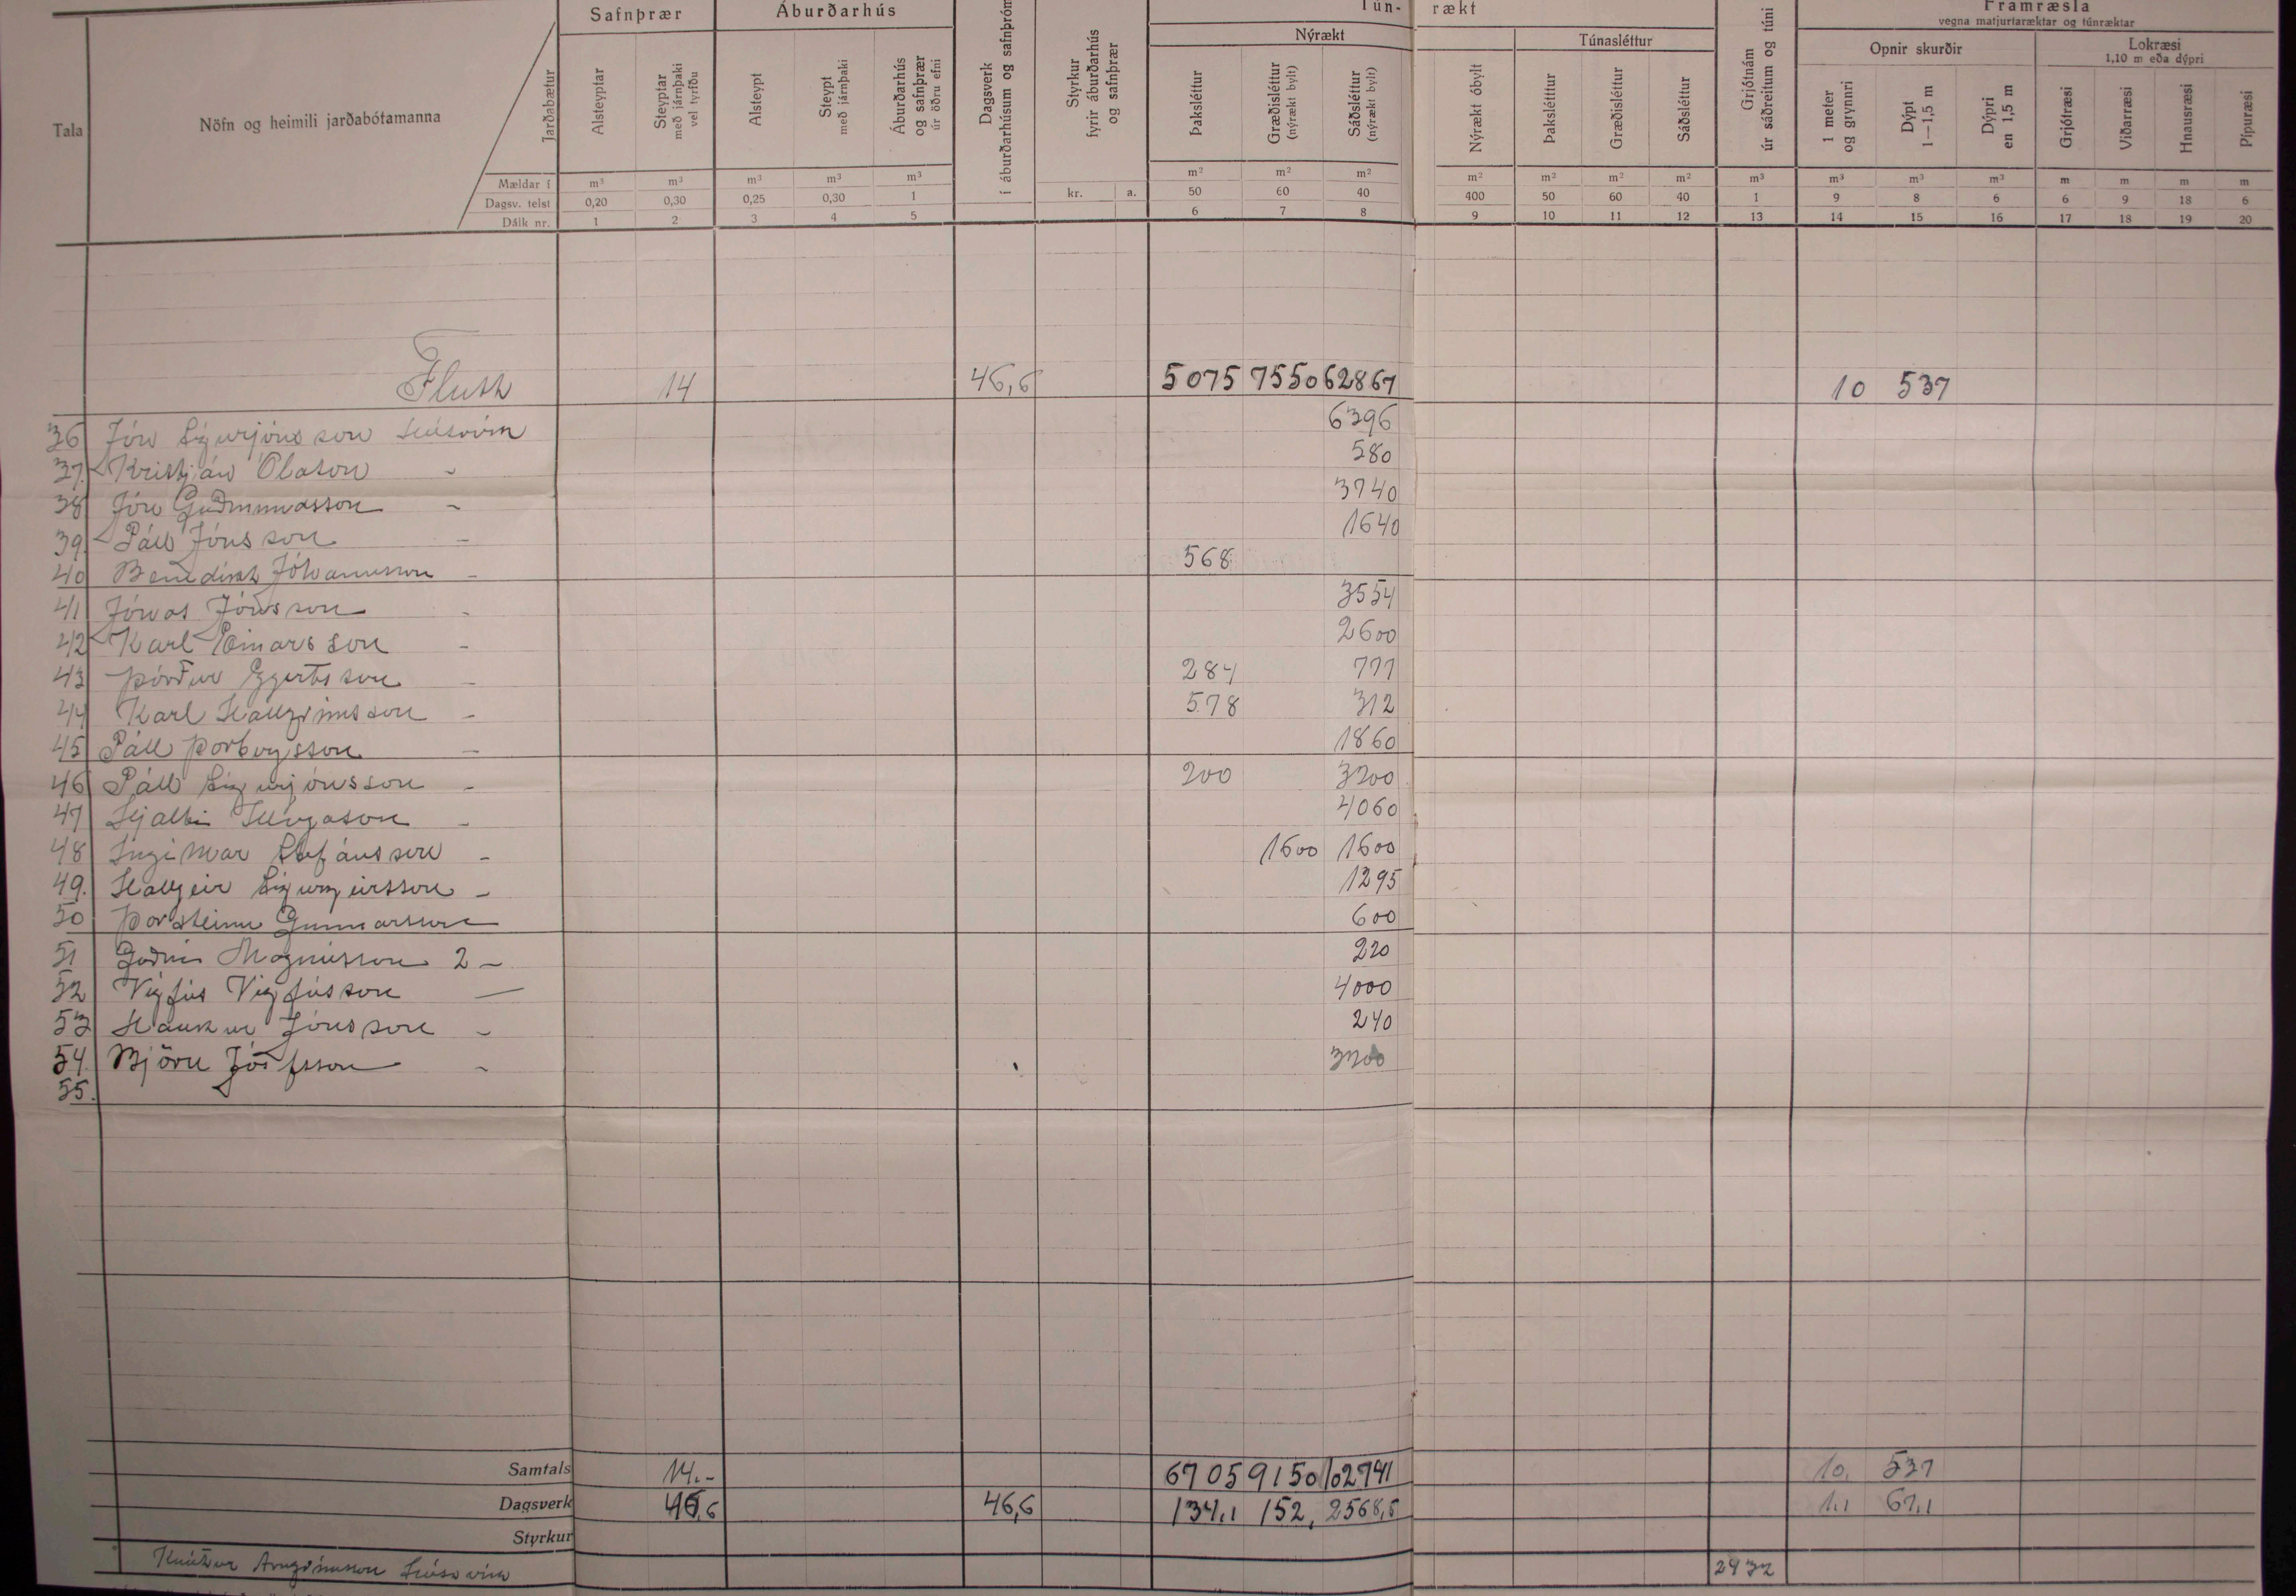 Safnþrær Áburðarhús Tún- rækt Framræsla
vegna matjurtaræktar og túnræktar
Nýrækt Túnasléttur Opnir skurðir Lokræsi
1,10 m eða dýpri
Tala Nöfn og heimili jarðabótamanna Jarðabætur
Alsteyptar
Steyptar með járnþaki vel tyrfðu
Alsteypt
Steypt með járnþaki
Áburðarhús og safnþrær úr öðru efni
Dagsverk í áburðarhúsum og safnþróm
Styrkur fyrir áburðarhús og safnþrær
Þaksléttur
Græðisléttur (nýrækt bylt)
Sáðsléttur (nýrækt bylt)
Nýrækt óbylt
Þakslétttur
Græðisléttur
Sáðsléttur
Grjótnám úr sáðreitum og túni
1 meter og grynnri
Dýpt 1—1,5 m
Dýpri en 1,5 m
Grjótræsi
Viðarræsi
Hnausræsi
Pípuræsi
Mældar í m³ m³ m³ m³ m³ kr. a. m² m² m² m² m² m² m² m³ m³ m³ m³ m m m m
Dagsv. telst 0,20 0,30 0,25 0,30 1 50 60 40 400 50 60 40 1 9 8 6 6 9 18 6
Dálk nr. 1 2 3 4 5 6 7 8 9 10 11 12 13 14 15 16 17 18 19 20
Flutt 14 46,6 5075 7550 62867 10 537
36 Jón Sigurjónsson Húsavík 6396
37. Kristján Ólason - 580
38 Jón Guðmundsson - 3740
39. Páll Jónsson - 1640
40 Benedikt Jóhannesson - 568
41 Jónas Jónsson - 3554
42 Karl Einarsson - 2600
43 Þórður Eggertsson - 284 777
44 Karl Hallgrímsson - 578 312
45 Páll Þorbergsson - 1860
46 Páll Sigurjónsson - 200 3200
47 Hjalti Illugason - 4060
48 Ingimar Stefánsson - 1600 1600
49. Hallgeir Sigurgeirsson - 1295
50 Þorsteinn Gunnarsson 600
51 Guðni Magnússon 2 - 220
52 Vigfús Vigfússon - 4000
53 Haukur Jónsson - 240
54. Björn Jósefsson - 3200
55.
Samtals 14.- 6705 9150 102741 10. 537
Dagsverk 46,6 46,6 134,1 152, 2568,5 1.1 67,1
Styrkur
Húsavík 2432